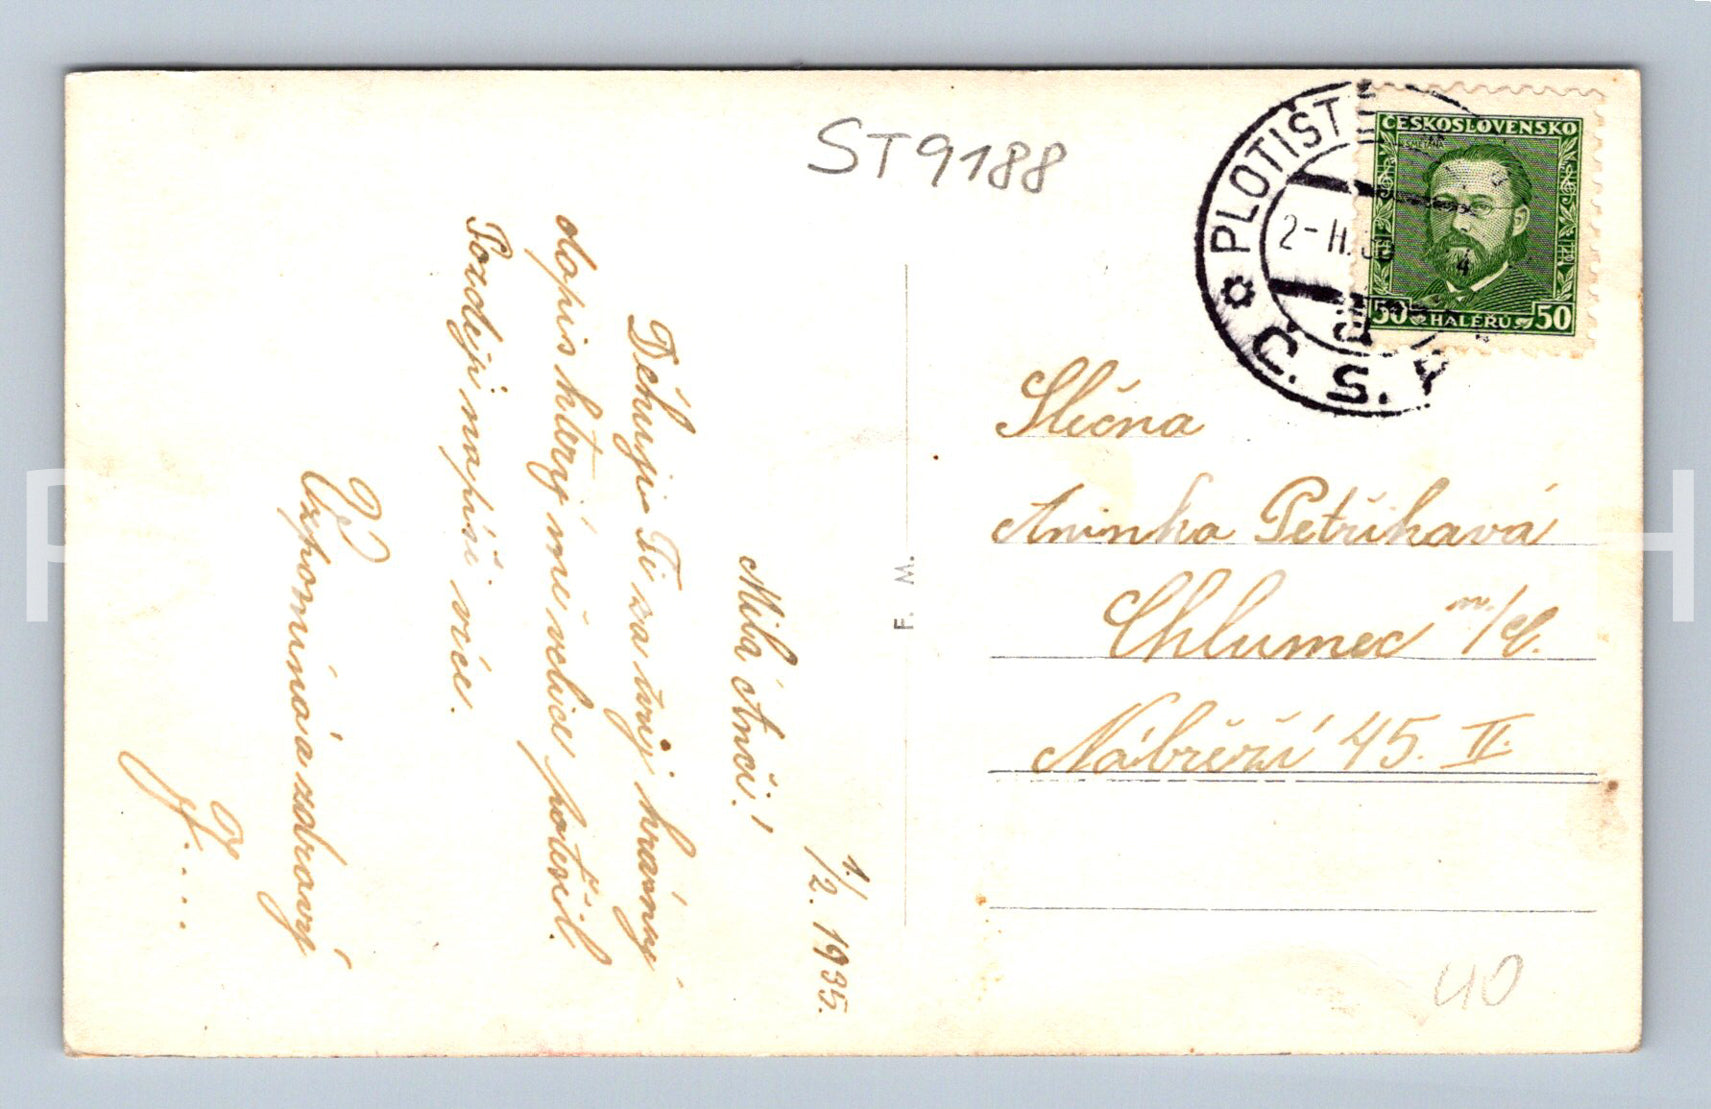 ST9188
1./2. 1935.
Milá Anči!
Děkuji Ti za tvůj krásný
dopis který mi velice potěšil.
Později napíši více.
Vzpomíná a zdraví
J....
F. M.
PLOTIŠTĚ
2-II.35
Č.S.
ČESKOSLOVENSKO
50 HALÉŘŮ 50
Slečna
Aninka Petřikavá
Chlumec n./C.
Nábřeží 45. II.
40
P
H